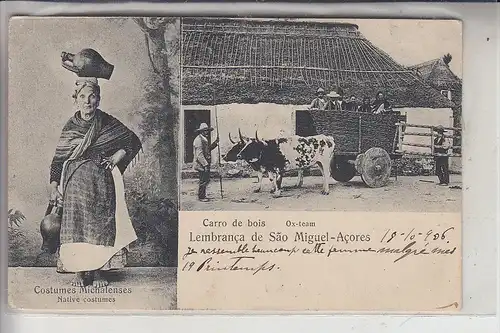 Carro de bois Ox-team
Lembrança de São Miguel-Açores
18-10-906
Je ressemble beaucoup cette femme malgré mes
19 Printemps.
Costumes Michalenses
Native costumes